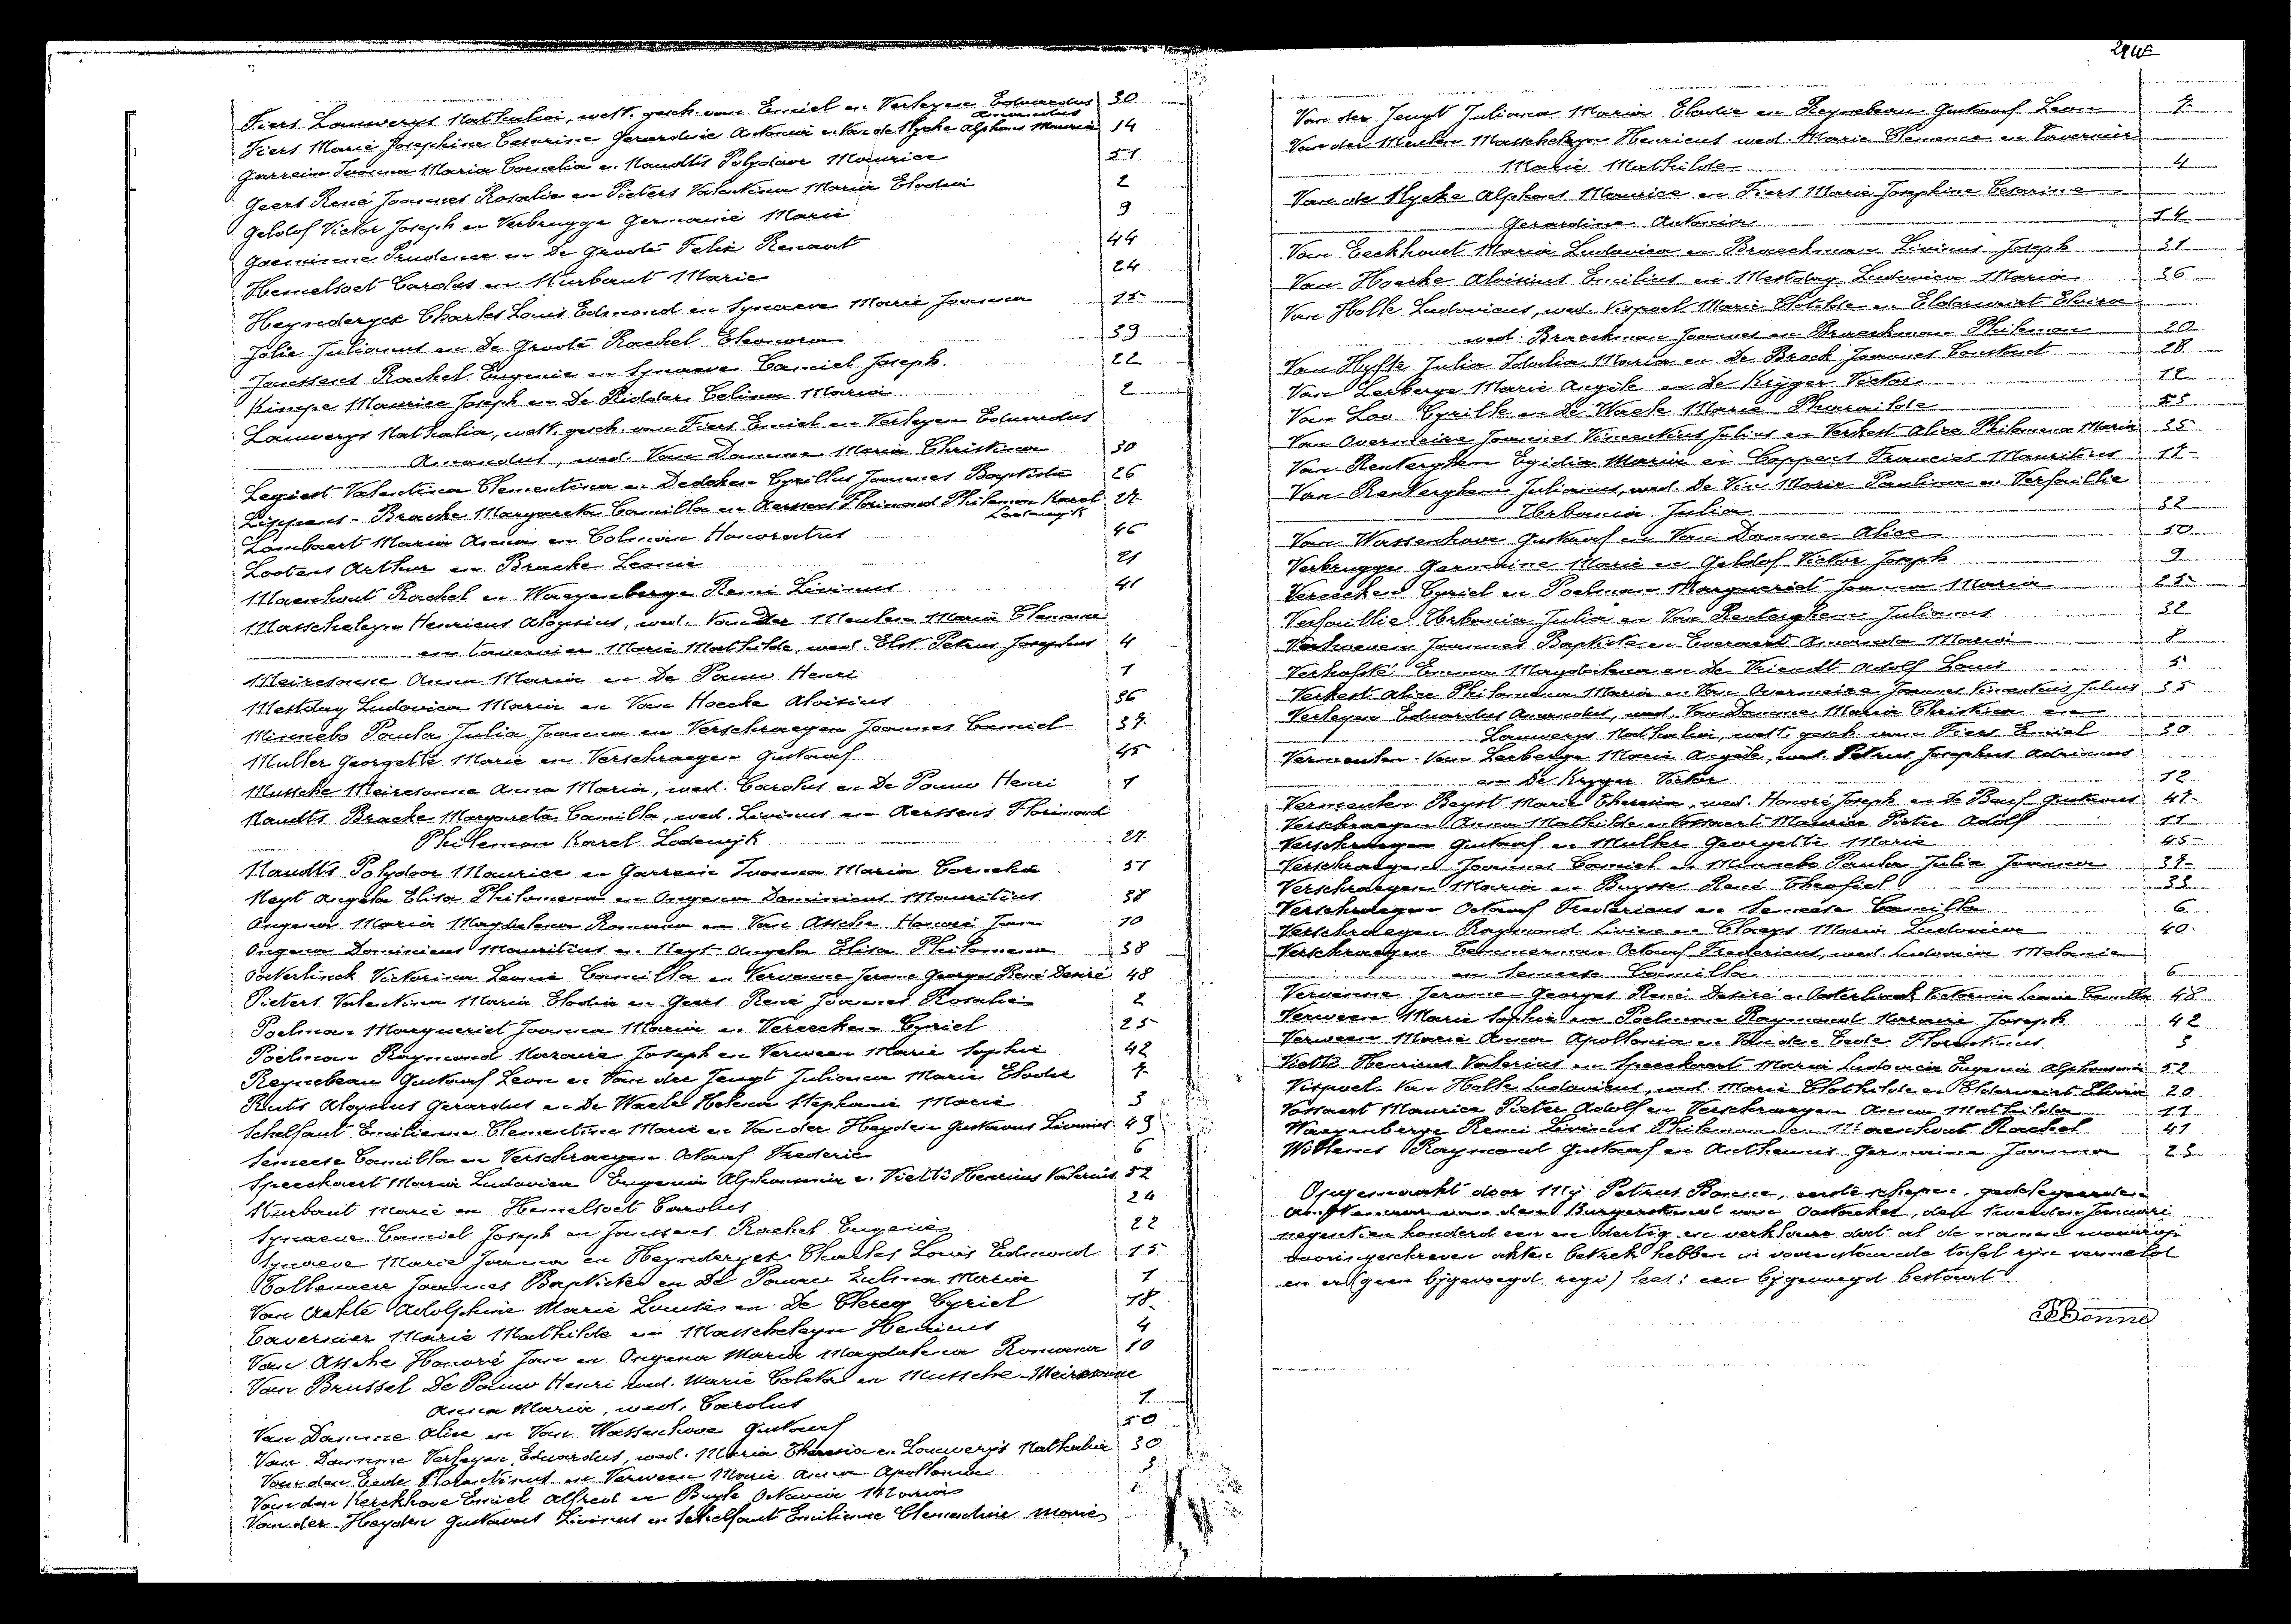 Fiers Lauwerys Nathalia, wett. gesch. van Emiel en Verleyen Eduardus 30
Amandus
Fiers Marie Josephine Cesarine Gerardine Antonia en Van de Slycke Alphons Maurice 14
Garrein Ivonna Maria Cornelia en Naudts Polydoor Maurice 51
Geers René Joannes Rosalie en Pieters Valentina Maria Elodia 2
Geldof Victor Joseph en Verbrugge Germanie Marie 9
Goeminne Prudence en De Groote Felix Renaat 44
Hemelsoet Carolus en Kurbaut Marie 24
Heynderyck Charles Louis Edmond en Synaeve Marie Joanna 15
Jolie Julianus en De Groote Rachel Eleonora 39
Janssens Rachel Eugenie en Synaeve Camiel Joseph 22
Kimpe Maurice Joseph en De Ridder Celina Maria 2
Lauwerys Nathalia, wett. gesch. van Fiers Emiel en Verleyen Eduardus
Amandus, wed. Van Damme Maria Christina 30
Legiest Valentina Clementina en Dedeken Cyrillus Joannes Baptista 26
Lippens-Bracke Margareta Camilla en Aerssens Florimond Philemon Karel 27
Lodewijk
Lambaert Maria Anna en Colman Honoratus 46
Lootens Arthur en Bracke Leonie 21
Maenhout Rachel en Waeyenberge Remi Livinus 41
Masscheleyn Henricus Aloysius, wed. Van Der Meulen Maria Clemence
en Tavernier Marie Mathilde, wed. Elst Petrus Josephus 4
Meiresonne Anna Maria en De Pauw Henri 1
Mestdag Ludovica Maria en Van Hoecke Aloisius 36
Minnebo Paula Julia Joanna en Verschraegen Joannes Camiel 37
Muller Georgette Marie en Verschraegen Gustaaf 45
Mussche Meiresonne Anna Maria, wed. Carolus en De Pauw Henri 1
Naudts Bracke Margareta Camilla, wed. Livinus en Aerssens Florimond
Philemon Karel Lodewijk 27
Naudts Polydoor Maurice en Garrein Ivonna Maria Cornelia 51
Neyt Angela Elisa Philomena en Ongena Dominicus Mauritius 38
Ongena Maria Magdalena Romana en Van Assche Honoré Jan 10
Ongena Dominicus Mauritius en Neyt Angela Elisa Philomena 38
Oosterlinck Victorina Leonie Camilla en Vervenne Jerome Georges René Desiré 48
Pieters Valentina Maria Elodia en Geers René Joannes Rosalie 2
Poelman Margueriet Joanna Maria en Vereecken Cyriel 25
Poelman Raymond Nazarie Joseph en Verween Marie Sophie 42
Reynebeau Gustaaf Leon en Van der Jeugt Juliana Marie Elodie 7
Ruts Aloysius Gerardus en De Waele Helena Stephanie Marie 3
Schelfaut Emilienne Clementine Marie en Van der Heyden Gustavus Livinus 49
Semeese Camilla en Verschraegen Octaaf Frederic 6
Speeckaert Maria Ludovica Eugenia Alphonsina en Vietti Henricus Valerius 52
Kurbaut Marie en Hemelsoet Carolus 24
Synaeve Camiel Joseph en Janssens Rachel Eugenie 22
Synaeve Marie Joanna en Heynderyck Charles Louis Edmond 15
Joannes Baptiste en De Pauw Zulma Marie 1
Van Aelst Adolphine Marie Louise en De Clercq Cyriel 18
Tavernier Marie Mathilde en Masscheleyn Henricus 4
Van Assche Honoré Jan en Ongena Maria Magdalena Romana 10
Van Brussel De Pauw Henri wed. Marie Coleta en Mussche-Meiresonne
Anna Maria, wed. Carolus 1
Van Damme Alice en Van Wassenhove Gustaaf 50
Van Damme Verleyen Eduardus, wed. Maria Theresia en Lauwerys Nathalia 30
Van den Eede Florentinus en Verween Marie Anna Apollonia 5
Van den Kerckhove Emiel Alfred en Buyse Octavie Maria
Van der Heyden Gustavus Livinus en Schelfaut Emilienne Clementine Marie
Van der Jeugt Juliana Maria Elodie en Reynebeau Gustaaf Leon 7
Van der Meulen Masscheleyn Henricus wed. Marie Clemence en Tavernier
Marie Mathilde 4
Van de Slycke Alphons Maurice en Fiers Marie Josephine Cesarine
Gerardine Antonia 14
Van Eeckhout Maria Ludovica en Braeckman Livinus Joseph 31
Van Hoecke Aloisius Emilius en Mestdag Ludovica Maria 36
Van Holle Ludovicus, wed. Vispoel Marie Clotilde en Elderweirt Elvira
wed. Braeckman Joannes en Braeckman Philemon 20
Van Hyfte Julia Idalia Maria en De Brock Joannes Constant 28
Van Lerberge Marie Angèle en De Kryger Victor 12
Van Loo Cyrille en De Waele Marie Pharaïlde 53
Van Overmeire Joannes Vincentius Julius en Verkest Alice Philomena Maria 35
Van Renterghem Egidia Maria en Coppens Francies Mauritius 17
Van Renterghem Julianus, wed. De Vin Marie Paulina en Versaillie
Urbania Julia 32
Van Wassenhove Gustaaf en Van Damme Alice 50
Verbrugge Germaine Marie en Geldof Victor Joseph 9
Vereecken Cyriel en Poelman Margueriet Joanna Maria 25
Versaillie Urbania Julia en Van Renterghem Julianus 32
Verhoeven Joannes Baptiste en Everaert Amanda Maria 8
Verholsté Emma Magdalena en De Vriendt Adolf Louis 5
Verkest Alice Philomena Maria en Van Overmeire Joannes Vincentius Julius 35
Verleyen Eduardus Amandus, wed. Van Damme Maria Christina en
Lauwerys Nathalia, wett. gesch. van Fiers Emiel 30
Vermeulen-Van Lerberge Marie Angèle, wed. Petrus Josephus Adrianus
en De Kryger Victor 12
Vermeulen Beyst Marie Theresia, wed. Honoré Joseph en De Beuf Gustavus 47
Verschraegen Anna Mathilde en Vossaert Maurice Pieter Adolf 11
Verschraegen Gustaaf en Muller Georgette Marie 45
Verschraegen Joannes Camiel en Minnebo Paula Julia Joanna 37
Verschraegen Maria en Buysse René Theofiel 33
Verschraegen Octaaf Fredericus en Semeese Camilla 6
Verschraegen Raymond Livien en Claeys Maria Ludovica 40
Verschraegen Temmerman Octaaf Fredericus, wed. Ludovica Melanie
en Semeese Camilla 6
Vervenne Jerome Georges René Desiré en Oosterlinck Victorina Leonie Camilla 48
Verween Marie Sophie en Poelman Raymond Nazarie Joseph 42
Verween Marie Anna Apollonia en Van den Eede Florentinus 5
Vietti Henricus Valerius en Speeckaert Maria Ludovica Eugenia Alphonsina 52
Vispoel-Van Holle Ludovicus, wed. Marie Clothilde en Elderweirt Elvira 20
Vossaert Maurice Pieter Adolf en Verschraegen Anna Mathilda 11
Waeyenberge Remi Livinus Philemon en Maenhout Rachel 41
Willems Raymond Gustaaf en Antheunis Germaine Joanna 23
Opgemaakt door Mij Petrus Bonne, eerste schepen, gedelegeerden
Ambtenaar van den Burgerstand van Oostacker, den tweeden Januari
negentien honderd een en dertig en verklaar dat al de namen waarop
daaringeschreven akten betrek hebben in voorenstaande tafel zijn vermeld
en er (geen bijgevoegd regi) leest: een bijgevoegd bestaat.
PBonne